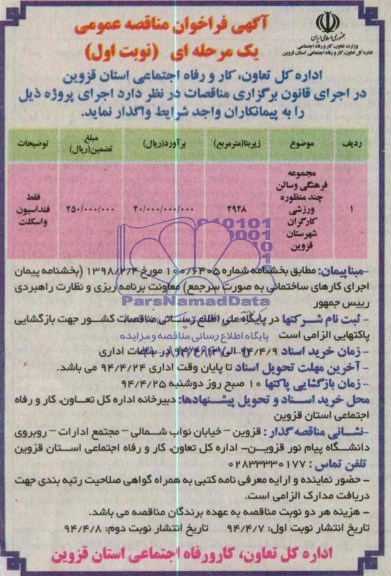 جمهوری اسلامی ایران
وزارت تعاون، کار و رفاه اجتماعی
اداره کل تعاون، کار و رفاه اجتماعی استان قزوین
آگهی فراخوان مناقصه عمومی
یک مرحله ای (نوبت اول)
اداره کل تعاون، کار و رفاه اجتماعی استان قزوین
در اجرای قانون برگزاری مناقصات در نظر دارد اجرای پروژه ذیل
را به پیمانکاران واجد شرایط واگذار نماید.
ردیف موضوع زیربنا(مترمربع) برآورد(ریال) مبلغ تضمین(ریال) توضیحات
۱ مجموعه فرهنگی وسالن چند منظوره ورزشی کارگران شهرستان قزوین ۲۹۲۸ ۲۰/۰۰۰/۰۰۰/۰۰۰ ۲۵۰/۰۰۰/۰۰۰ فقط فنداسیون واسکلت
-مبنا پیمان: مطابق بخشنامه شماره ۱۰۰/۶۴۰۵ مورخ ۱۳۹۸/۲/۴ (بخشنامه پیمان
اجرای کارهای ساختمانی به صورت سرجمع) معاونت برنامه ریزی و نظارت راهبردی
رییس جمهور
ParsNamadData
- ثبت نام شرکتها در پایگاه ملی اطلاع رسانی مناقصات کشور جهت بازگشایی
پایگاه اطلاع رسانی مناقصه و مزایده
پاکتهایی الزامی است
-زمان خرید اسناد ۹۴/۴/۹ در ساعات اداری
- آخرین مهلت تحویل اسناد تا پایان وقت اداری ۹۴/۴/۲۴ می باشد.
- زمان بازگشایی پاکتها ۱۰ صبح روز دوشنبه ۹۴/۴/۲۵
محل خرید اسناد و تحویل پیشنهادها: دبیرخانه اداره کل تعاون، کار و رفاه
اجتماعی استان قزوین
-نشانی مناقصه گذار: قزوین - خیابان نواب شمالی - مجتمع ادارات - روبروی
دانشگاه پیام نور قزوین- اداره کل تعاون، کار و رفاه اجتماعی استان قزوین
تلفن تماس: ۰۲۸۳۳۳۳۰۱۷۷
- حضور نماینده و ارایه معرفی نامه کتبی به همراه گواهی صلاحیت رتبه بندی جهت
دریافت مدارک الزامی است.
- هزینه هر دو نوبت مناقصه به عهده برندگان مناقصه می باشد.
تاریخ انتشار نوبت اول: ۹۴/۴/۷ تاریخ انتشار نوبت دوم: ۹۴/۴/۸
اداره کل تعاون، کارورفاه اجتماعی استان قزوین